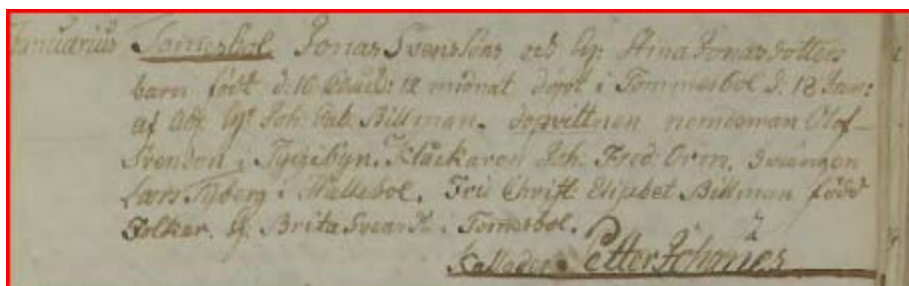 Januarius Tomesbol Jonas Svensons och h: Stina Jonasdotters
barn född d: 16 Ejusd: 12 midnat döpt i Tommesbol d: 18 Janu:
af Adj. Joh: Gab: Billman. dopvittnen nemdeman Olof
Svenson i Klåckaren Joh: Fred: Orm.
Lars Nyberg i Hallebol. Fru Christ: Elisabet Billman född
Folker. Brita Svens D: i Tomesbol.
Kallades Petter Johannes